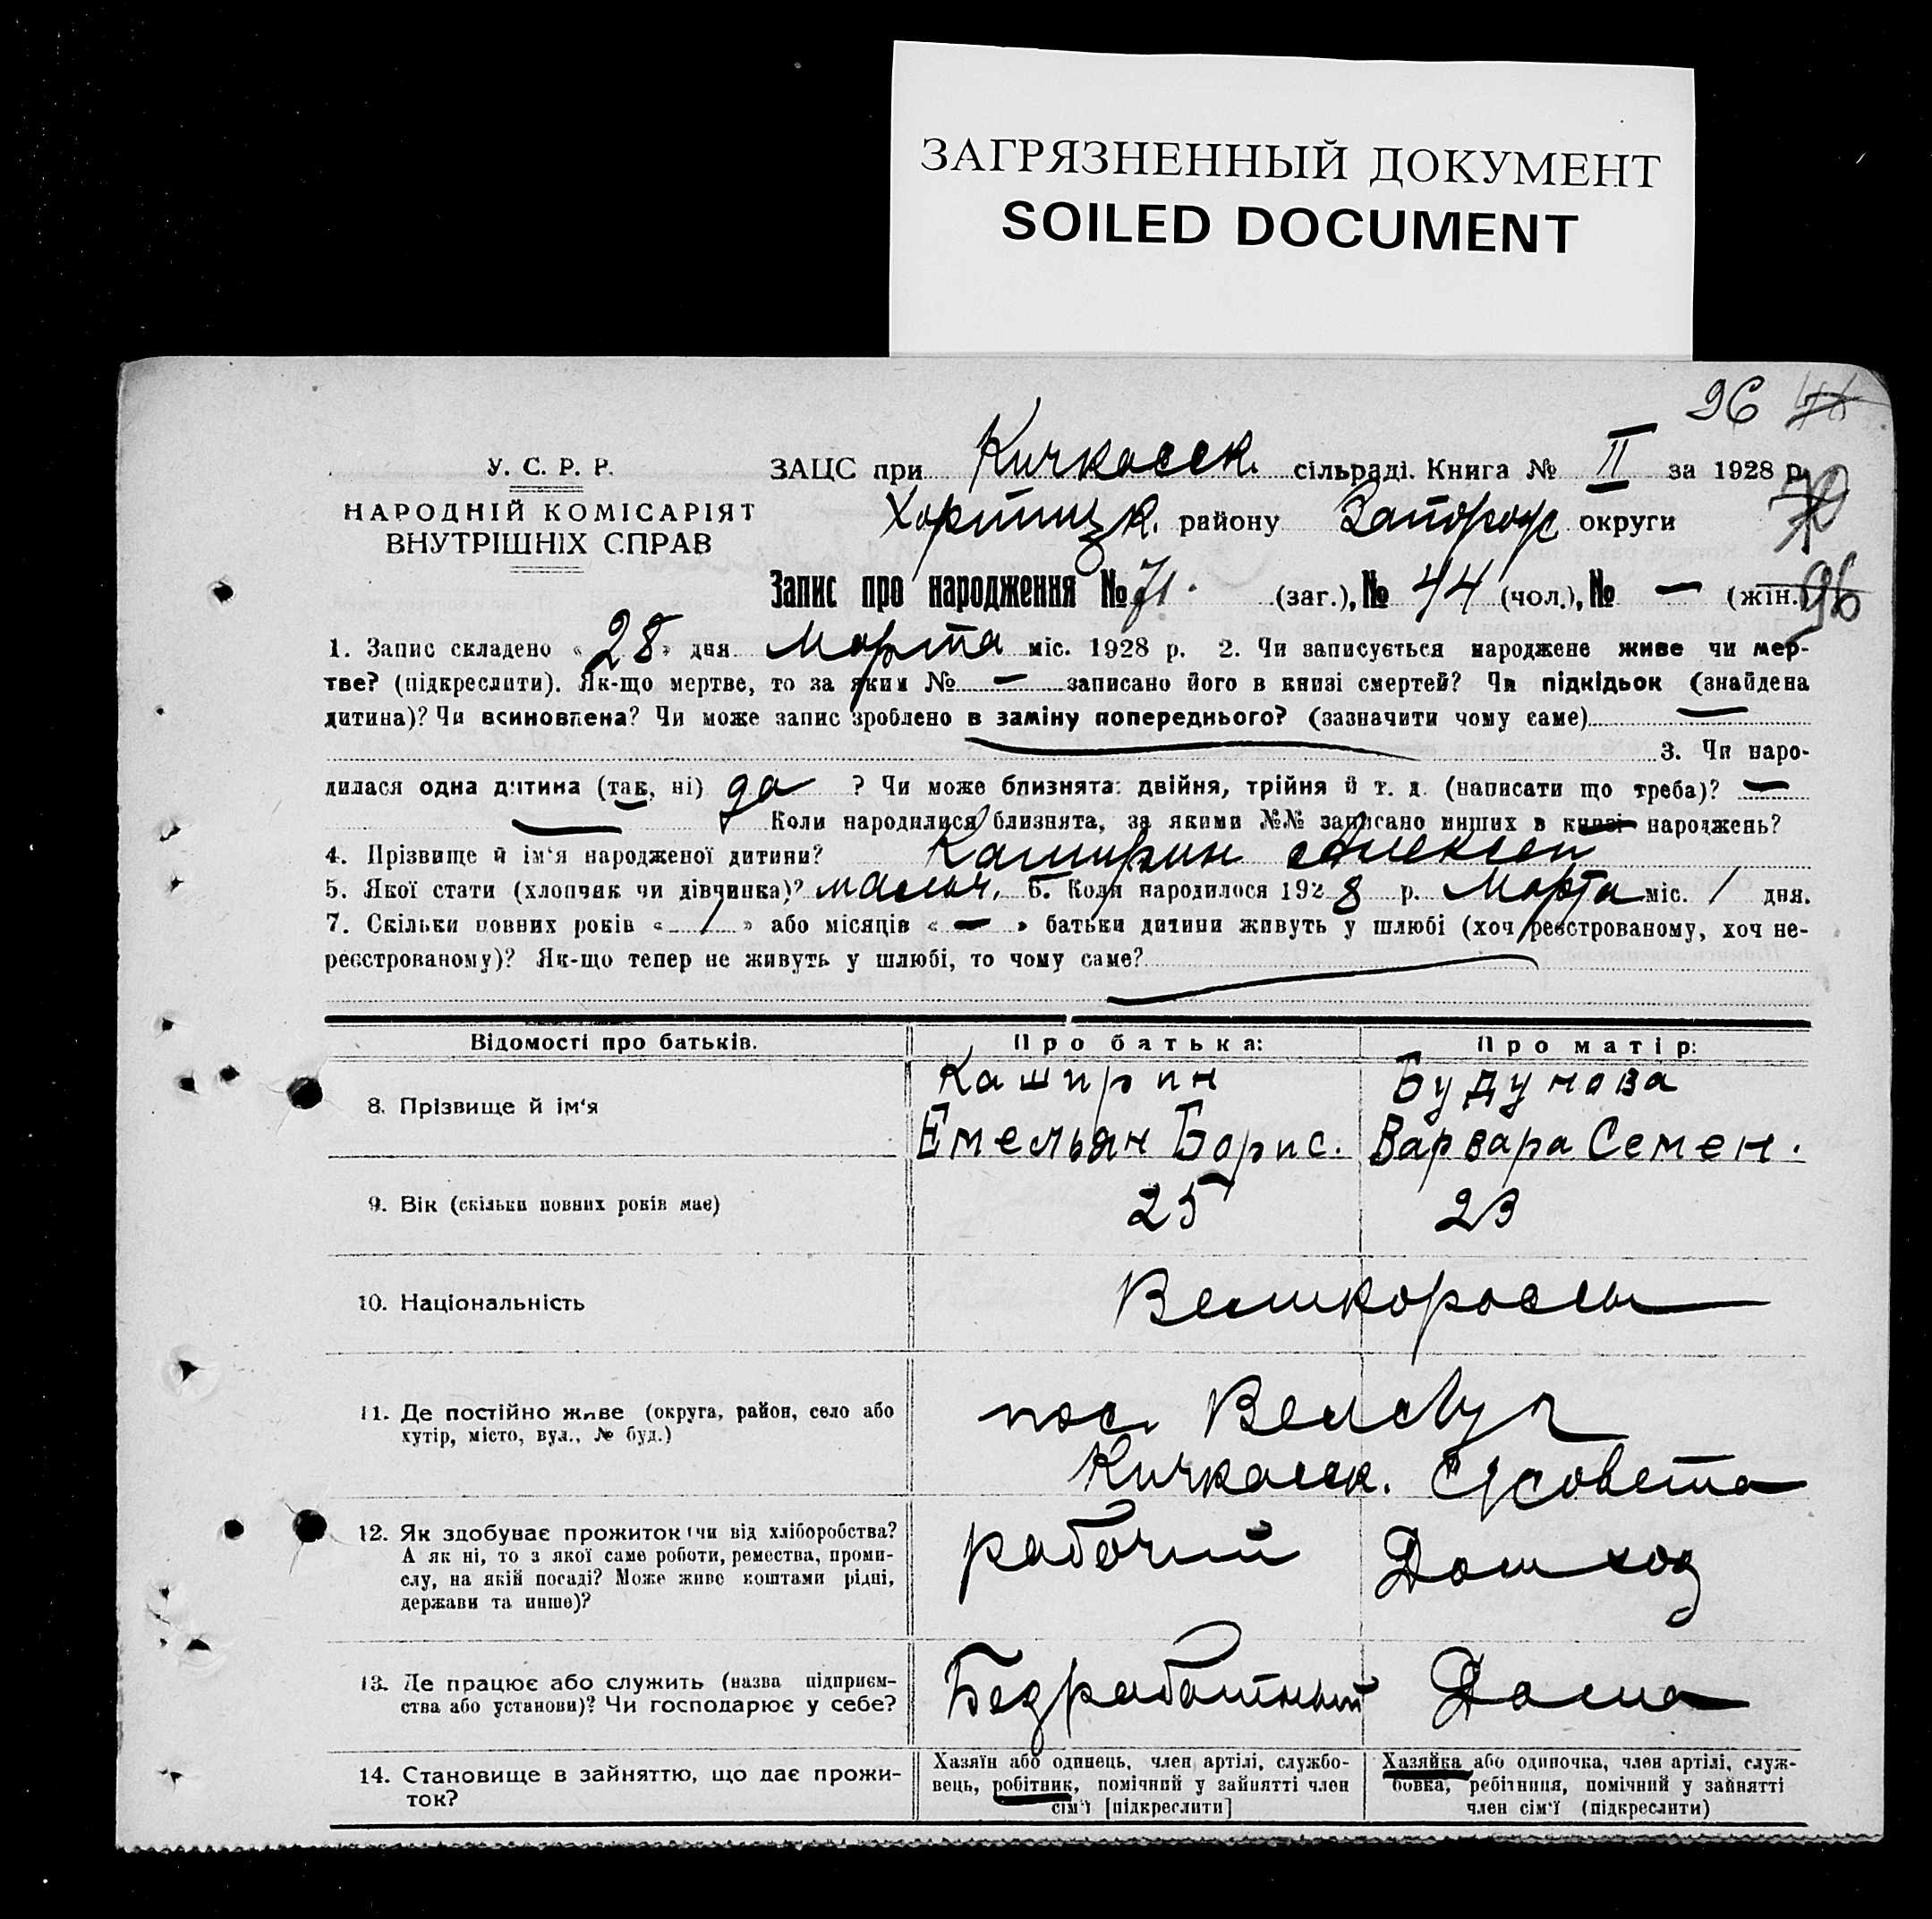 ЗАГРЯЗНЕННЫЙ ДОКУМЕНТ
SOILED DOCUMENT
96
У. С. Р. Р.
НАРОДНІЙ КОМІСАРІЯТ
ВНУТРІШНІХ СПРАВ
ЗАЦС при Кичкасск. сільраді. Книга № II за 1928 р.
Хортицк. району Запорож округи
70
Запис про народження № 71. (заг.), № 44 (чол.), № — (жін.) 96
1. Запис складено « 28 » дня Марта міс. 1928 р. 2. Чи записується народжене живе чи мер-
тве? (підкреслити). Як-що мертве, то за яким № — записано його в книзі смертей? Чи підкідьок (знайдена
дитина)? Чи всиновлена? Чи може запис зроблено в заміну попереднього? (зазначити чому саме) —
3. Чи наро-
дилася одна дитина (так, ні) да ? Чи може близнята: двійня, трійня й т. д. (написати що треба)? —
— Коли народилися близнята, за якими №№ записано инших в книзі народжень?
4. Прізвище й ім‘я народженої дитини? Каширин Алексей
5. Якої стати (хлопчик чи дівчинка)? мальч. 6. Коли народилося 1928 р. Марта міс. 1 дня.
7. Скільки повних років « 1 » або місяців « — » батьки дитини живуть у шлюбі (хоч реєстрованому, хоч не-
реєстрованому)? Як-що тепер не живуть у шлюбі, то чому саме?
Відомості про батьків. Про батька: Про матір:
8. Прізвище й ім‘я
Каширин
Емельян Борис.
Будунова
Варвара Семен.
9. Вік (скільки повних років має) 25 23
10. Національність Великороссы
11. Де постійно живе (округа, район, село або
хутір, місто, вул., № буд.)
пос. Вел Луг
Кичкасск. С/совета
12. Як здобуває прожиток (чи від хліборобства?
А як ні, то з якої саме роботи, ремества, проми-
слу, на якій посаді? Може живе коштами рідні,
держави та инше)?
рабочий Домхоз
13. Де працює або служить (назва підприєм-
ства або установи)? Чи господарює у себе?
Безработный Дома
14. Становище в зайняттю, що дає прожи-
ток?
Хазяїн або одинець, член артілі, службо-
вець, робітник, помічний у зайнятті член
сім‘ї [підкреслити]
Хазяйка або одиночка, член артілі, служ-
бовка, робітниця, помічний у зайнятті
член сім‘ї (підкреслити)